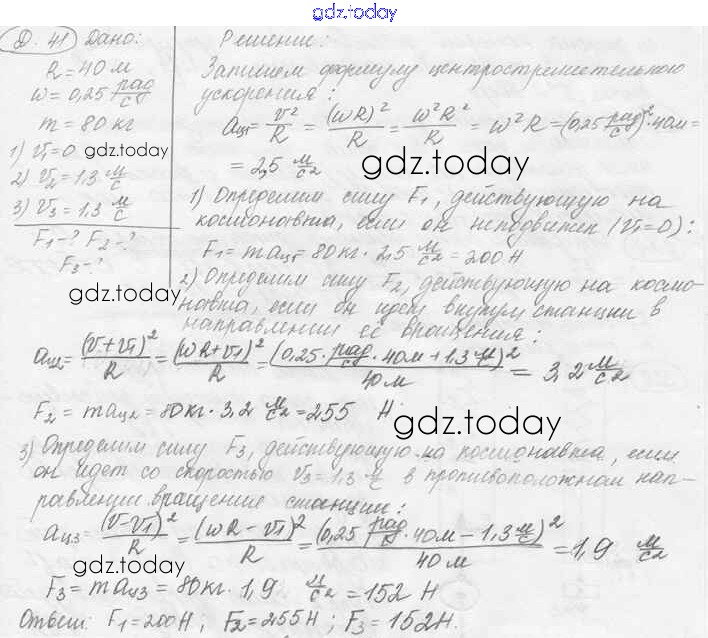 gdz.today
Д. 41 Дано: Решение:
R = 40 м
ω = 0,25 рад/с
m = 80 кг
1) v₁ = 0 gdz.today
2) v₂ = 1,3 м/с
3) v₃ = 1,3 м/с
F₁ - ? F₂ - ?
F₃ - ?
gdz.today
Запишем формулу центростремительного
ускорения:
aц₁ = v²/R = (ωR)²/R = ω²R²/R = ω²R = (0,25 рад/с)² · 40м =
= 2,5 м/с²
gdz.today
1) Определим силу F₁, действующую на
космонавта, если он неподвижен (v₁=0):
F₁ = maц₁ = 80кг · 2,5 м/с² = 200 Н
2) Определим силу F₂, действующую на космо-
навта, если он идет внутри станции в
направлении её вращения:
aц₂ = (v+v₁)²/R = (ωR+v₁)²/R = (0,25 · рад/с · 40м + 1,3 м/с)²/40 м = 3,2 м/с²
F₂ = maц₂ = 80кг · 3,2 м/с² = 255 Н
gdz.today
3) Определим силу F₃, действующую на космонавта, если
он идет со скоростью v₃ = 1,3 м/с в противоположном нап-
равлении вращения станции:
aц₃ = (v-v₁)²/R = (ωR - v₁)²/R = (0,25 рад/с · 40м - 1,3 м/с)²/40 м = 1,9 м/с²
gdz.today
F₃ = maц₃ = 80кг · 1,9 м/с² = 152 Н
Ответ: F₁ = 200 Н; F₂ = 255 Н; F₃ = 152 Н.
gdz.today